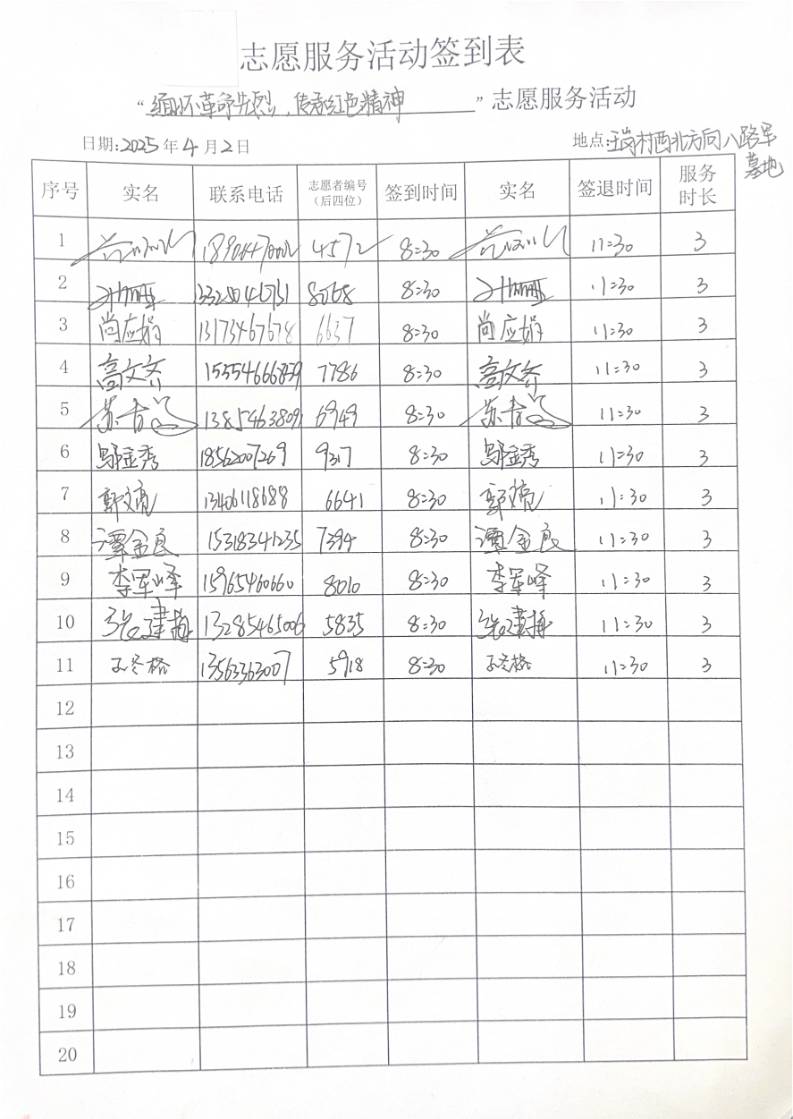 志愿服务活动签到表
“缅怀革命先烈,传承红色精神”志愿服务活动
日期:2025年4月2日 地点:王岗村西北方向八路军
墓地
序号 实名 联系电话 志愿者编号(后四位) 签到时间 实名 签退时间 服务时长
1 4572 8:30 11:30 3
2 13328046731 8768 8:30 11:30 3
3 尚应娟 13173467678 6637 8:30 11:30 3
4 高文齐 15554666839 7786 8:30 高文齐 11:30 3
5 13854638091 6949 8:30 11:30 3
6 邬金秀 18562007269 9317 8:30 邬金秀 11:30 3
7 郭亮 13406118688 6641 8:30 郭亮 11:30 3
8 谭金良 15318341235 7394 8:30 谭金良 11:30 3
9 李军峰 15965460660 8010 8:30 李军峰 11:30 3
10 张建梅 13285465006 5835 8:30 张建梅 11:30 3
11 王冬格 13563363007 5918 8:30 王冬格 11:30 3
12
13
14
15
16
17
18
19
20